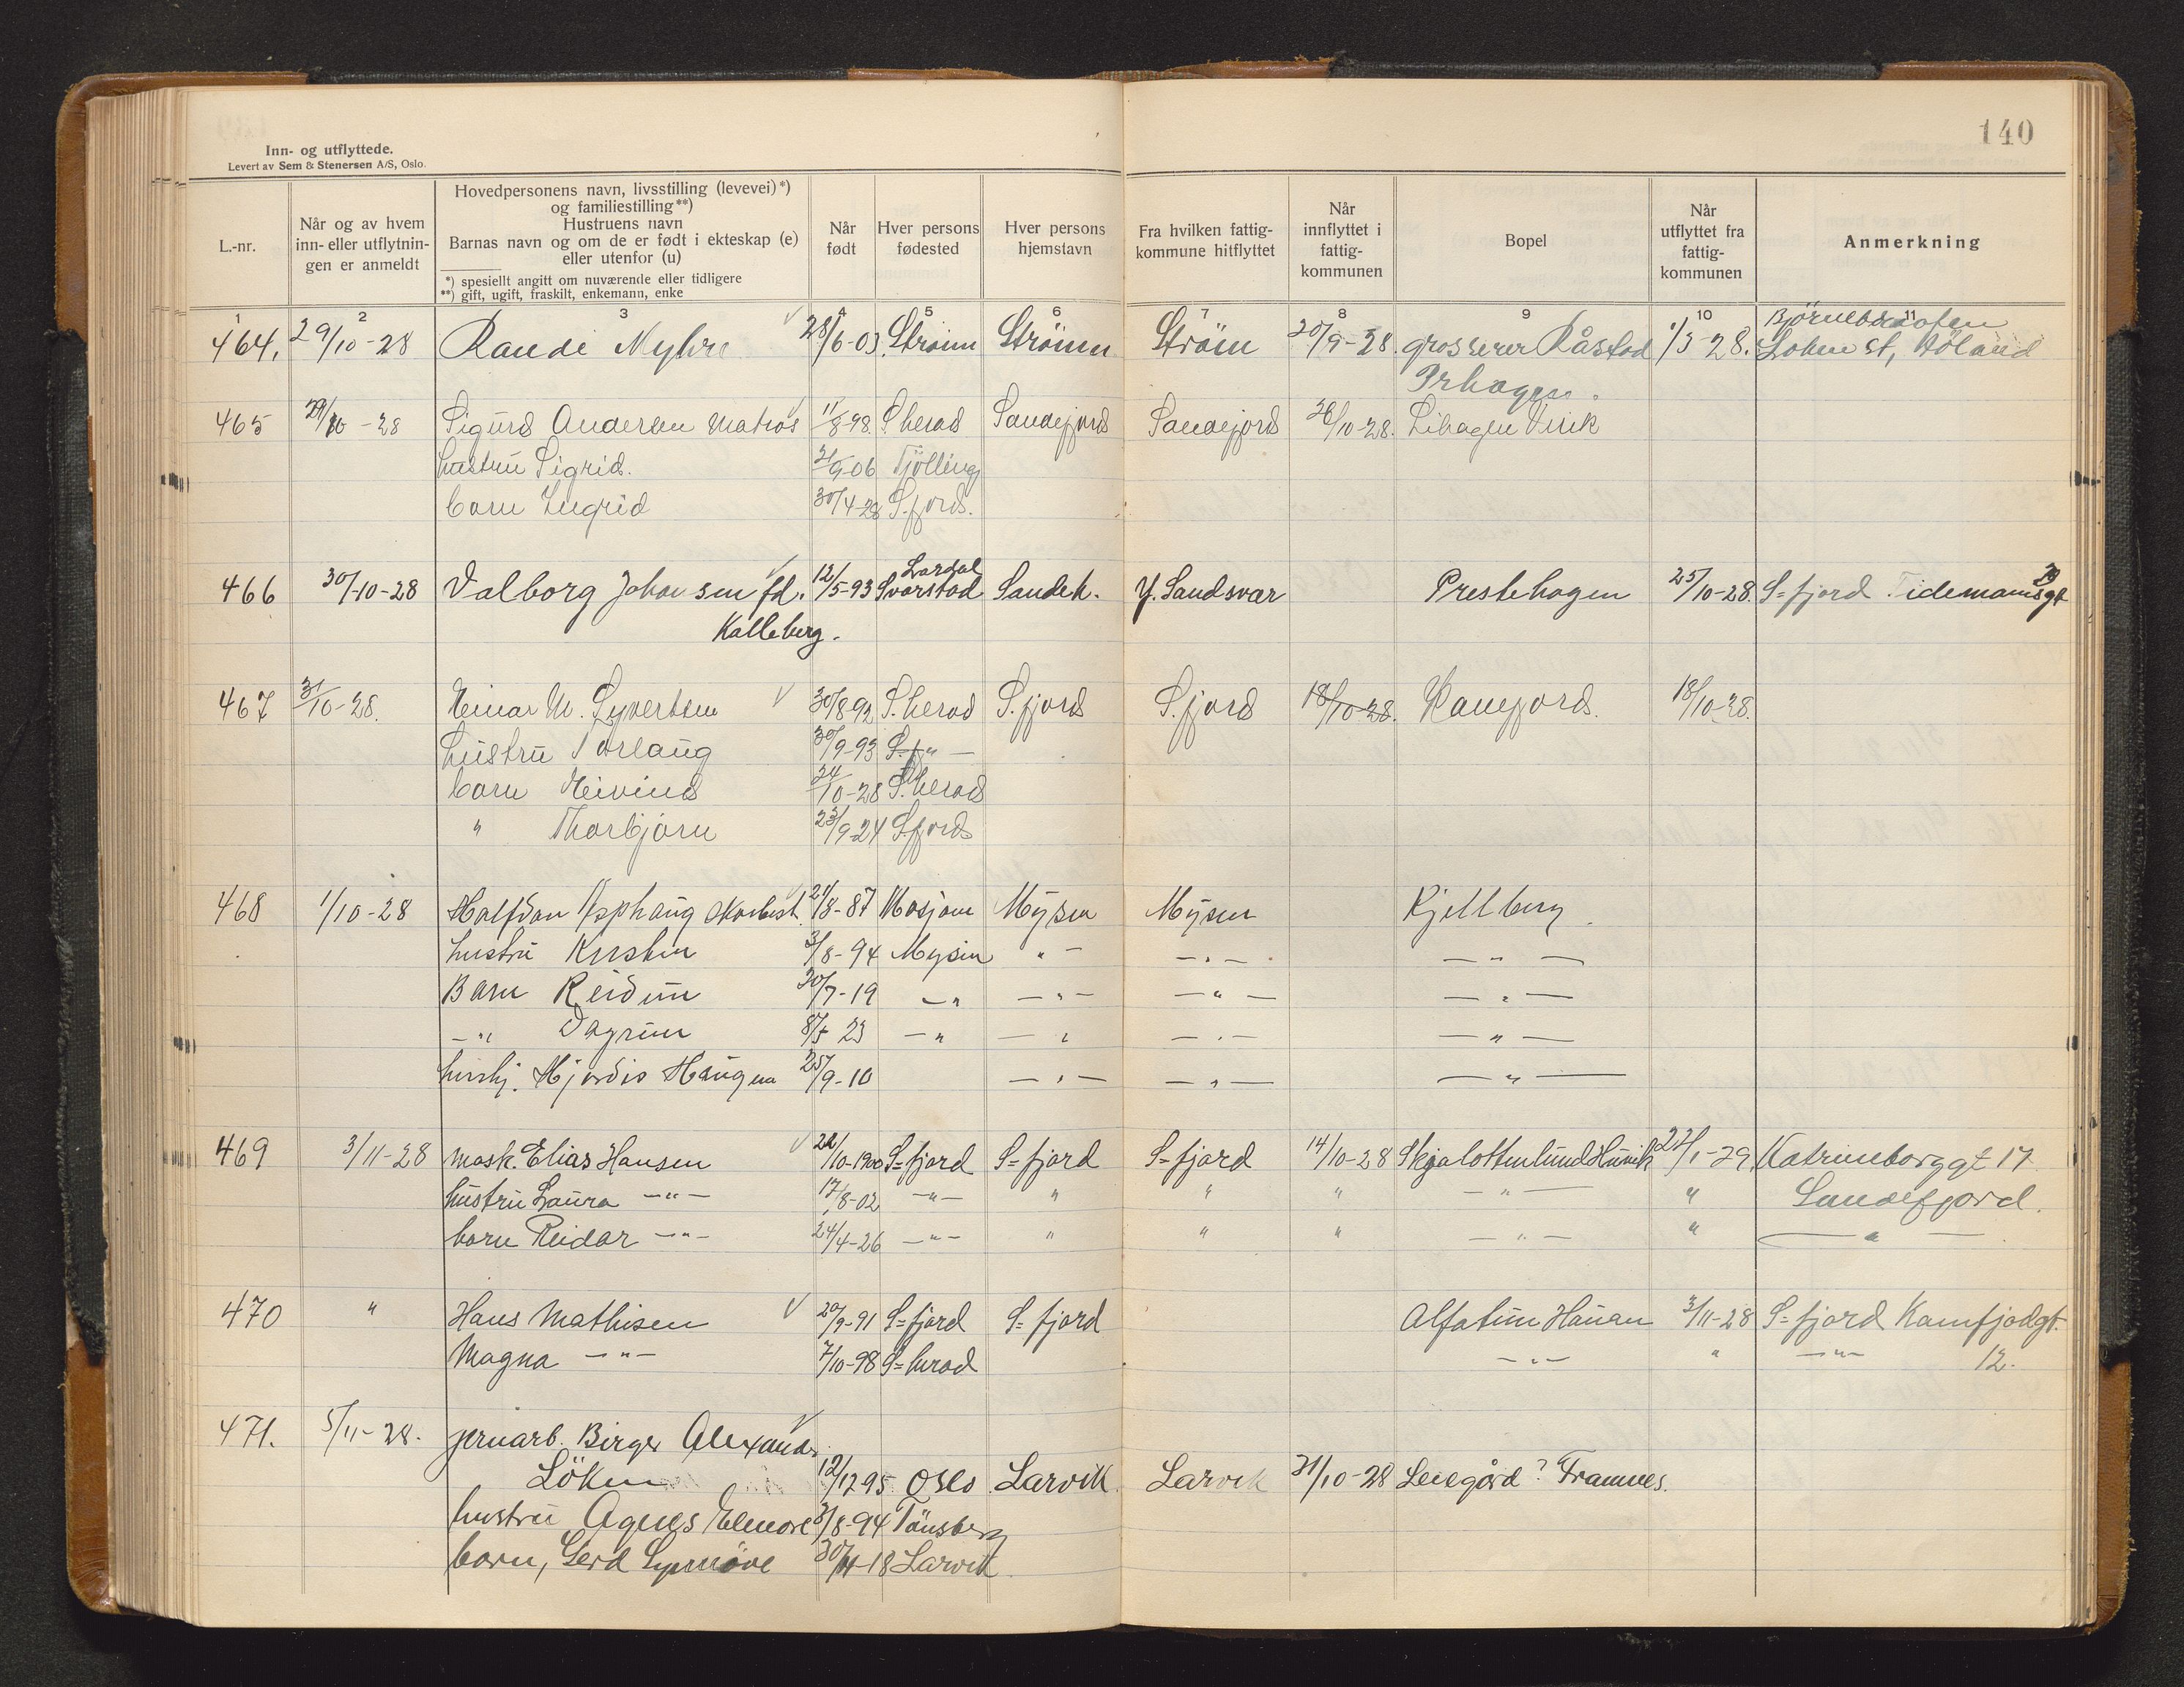 140
Inn- og utflyttede.
Levert av Sem & Stenersen A/S, Oslo.
L.-nr.
Når og av hvem inn- eller utflytnin- gen er anmeldt
Hovedpersonens navn, livsstilling (levevei)*)
og familiestilling**)
Hustruens navn
Barnas navn og om de er født i ekteskap (e)
eller utenfor (u)
*) spesiellt angitt om nuværende eller tidligere
**) gift, ugift, fraskilt, enkemann, enke
Når født
Hver persons fødested
Hver persons hjemstavn
Fra hvilken fattig- kommune hitflyttet
Når innflyttet i fattig- kommunen
Bopel
Når utflyttet fra fattig- kommunen
Anmerkning
1 2 3 4 5 6 7 8 9 10 11
464. 29/10-28 Randi Myhre 28/6-03 Strømm Strömm Ström 20/9-28. grosserer Råstad 1/3-28. Löken st, Höland
Prhagen.
465 29/10-28 Sigurd Andersen Matros 11/8-98. S.herad Sandefjord Sandefjord 26/10-28. Lihagen Virik
hustru Sigrid. 21/9-06 Tjölling
barn Ingrid 30/4-28 S.fjord.
Lardal
466 30/10-28 Valborg Johansen fd. 12/5-93 Svarstad Sandeh. Y. Sandsvær Prestehagen 25/10-28. S=fjord Tidemandsgt
Kalleberg.
467 31/10-28. Einar M. Syvertsen 30/8-92 S.herad S.fjord S.fjord 18/10-28. Kamfjord. 18/10-28.
hustru Torlaug 30/9-93 S.f " —
barn Eivind 24/10-28 S.herad
" Thorbjørn 23/9-24 S.fjord
468 1/10-28 Halfdan Asphaug 21/8-87 Mosjøen Mysen Mysen Kjellberg
hustru Kirsten 3/8-94 Mysen " — — " — — " —
Barn Reidun 20/7-19 — " — " — — " — — " —
— " Dagrun 8/5 23 — " — " — " — — " —
hushj. Hjørdis Haugen 25/9-10 — " — — " — — " —
469 3/11-28 mask. Elias Hansen 22/10-1900 S=fjord S=fjord S=fjord 14/10-28 Skjalottenlund Hunik 22/1-29 Katrineborggt 17
hustru Laura — " — 17/8-02 — " — " " " — " — " Sandefjord.
barn Reidar — " — 24/4-26 — " — " " " — " — " — " —
470 " Hans Mathisen 20/9-91 S=fjord S=fjord Alfatun Hauan 3/11-28 S=fjord Kamfjodgt.
Magna — " — 7/10-98 S=herad — " — " — " — 12.
471. 5/11-28. jernarb. Birger Alexander
Löken 12/12 95 Oslo Larvik Larvik 31/10-28 Leiegård? Framnes.
hustru Agnes Elenore 3/8-94 Tönsberg
barn, Gerd Synnöve 30/11-18 Larvik